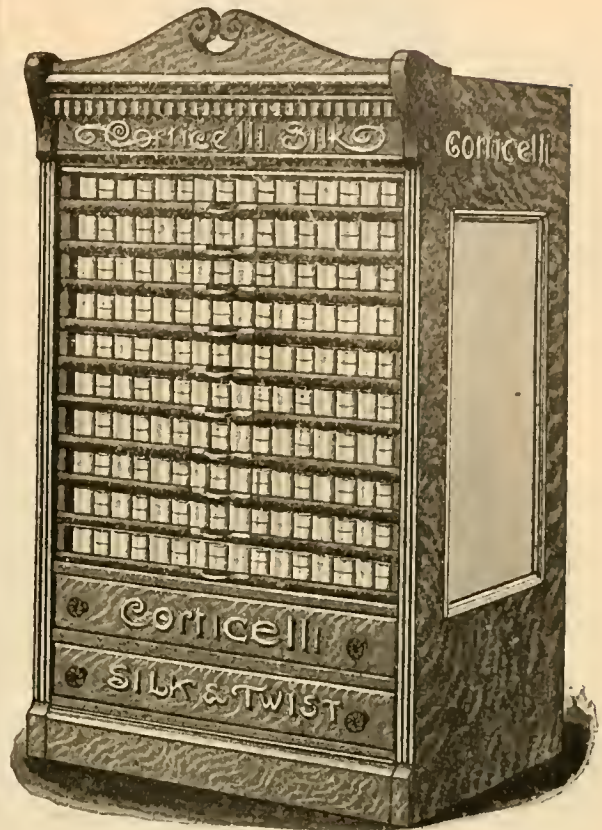 Corticelli Silk
Corticelli
Corticelli
SILK & TWIST